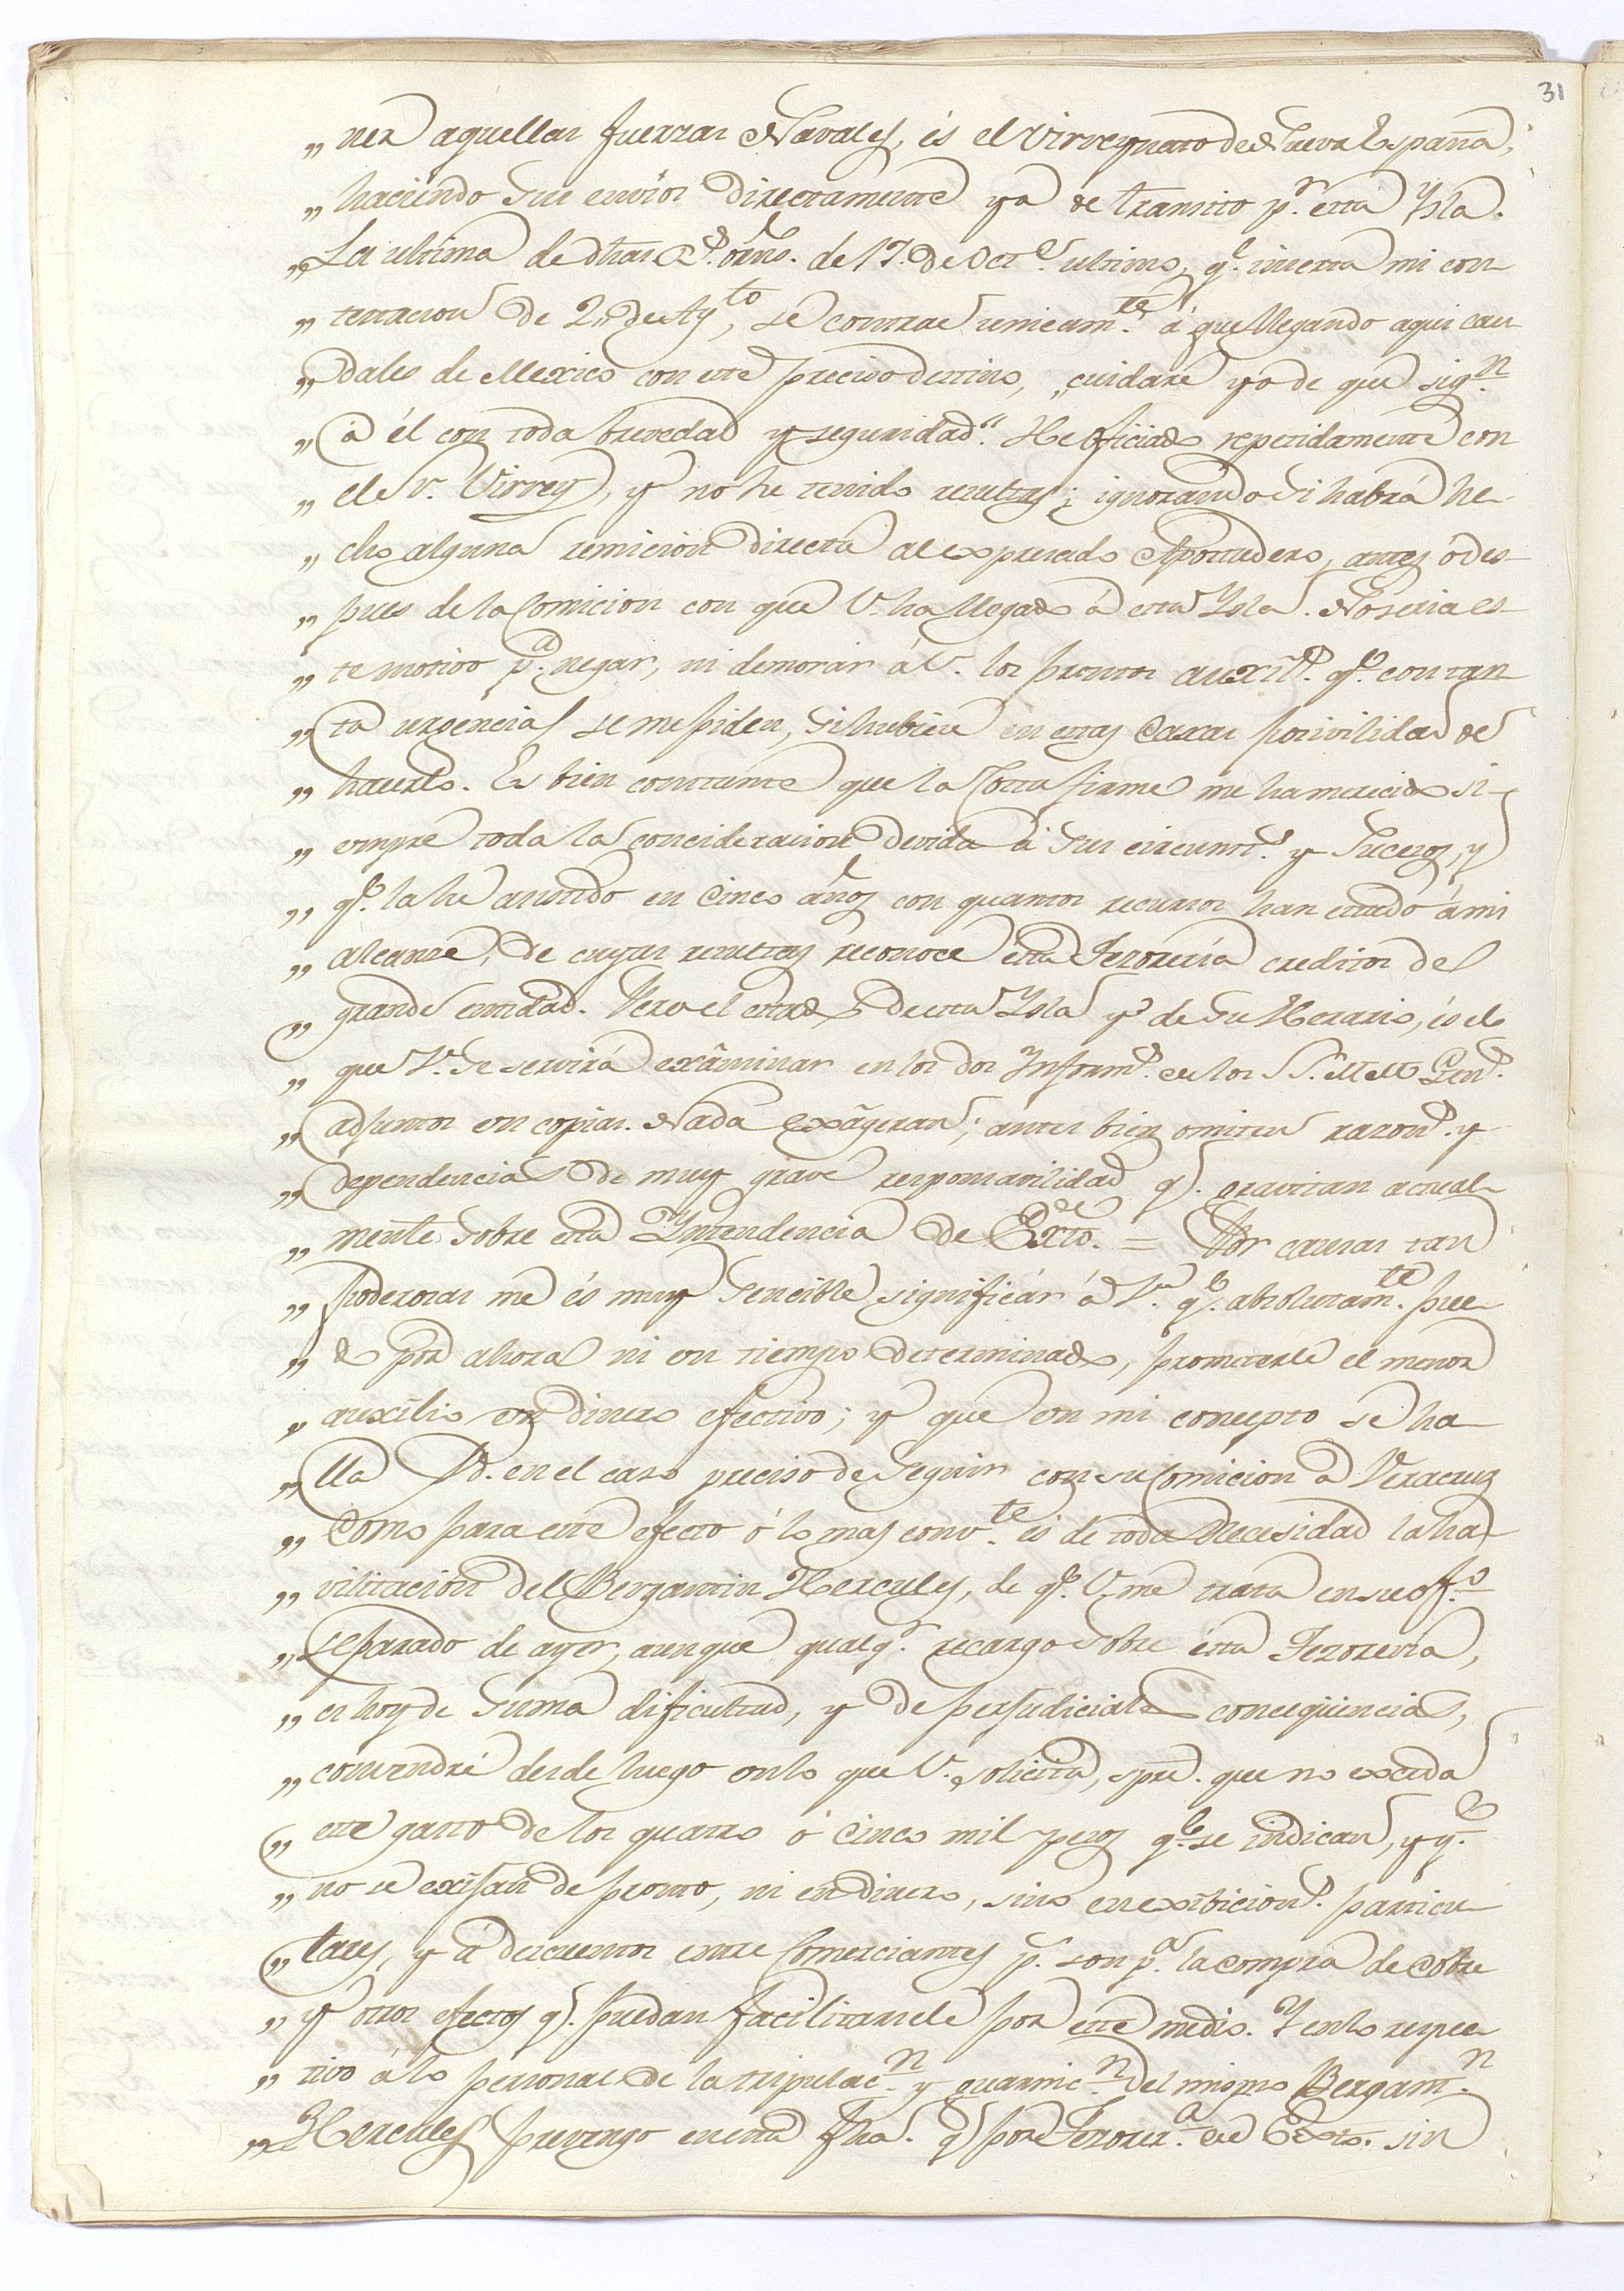 31
„ ner aquellas fuerzas Navales, és el Virreynato de Nueva España,
„ haciendo sus envios directamente ya de transito p.r esta Ysla.
„ La ultima de dhas R.s orns. de 17. de Oct.e ultimo, q.e inserta mi con-
„ testacion de 2,, de Ag.to, se contrae unicam.te á que llegando aqui cau-
„ dales de Mexico con este preciso destino, „cuidaré yo de que sig.n
„ a él con toda brevedad y seguridad." He oficiado repetidamente con
„ el S.r Virrey, y no he tenido resultas; ignorando si habrá he-
„ cho alguna remicion directa al expresado Apostadero, antes ó des-
„ pues de la Comicion con que V. ha llegado á esta Ysla. No seria es-
„ te motivo p.a negar, ni demorar á V. los prontos auxil.s q.e con tan-
„ ta urgencia se me piden, si hubiera en estas Caxas posivilidad de
„ hacerlo. Es bien constante que la Costa firme me ha merecido si-
„ empre toda la concideracion devida á sus circunst.s y Sucesos, y
„ q.e la he asistido en Cinco años con quantos recursos han estado á mi
„ alcanse, de cuyas resultas reconoce esta Tezorería creditos de
„ grande entidad. Pero el estado de esta Ysla y de su Herario, és el
„ que V. se servirá exâminar en los dos Inform.s de los S.S. Mtros Gen.s
„ adjuntos en copias. Nada exâgeran; antes bien omiten razon.s y
„ dependencias de muy grave responsavilidad q.e gravitan actual-
„ mente sobre esta Yntendencia de Exto. = Por causas tan
„ poderosas me és muy sencible significár á V. q.e absolutam.te pue-
„ do por ahora ni en tiempo determinado, prometerle el menor
„ auxîlio en dinero efectivo; y que en mi concepto se ha-
„ lla Vd. en el caso preciso de seguir con su Comicion a Veracruz
„ Como para este efecto ó lo mas conv.te es de toda Necesidad la ha-
„ vilitacion del Bergantin Hercules, de q.e V. me trata en su of.o
„ separado de ayer, aunque qualq.r recargo sobre ésta Tezorería,
„ es hoy de suma dificultad, y de perjudiciales consequencias,
„ convendré desde luego en lo que V. solicita, spre. que no exceda
„ este gasto de los quatro ó Cinco mil pesos q.e se indican, y q.e
„ no se exîjan de pronto, ni en dinero, sino en exîbicion.s particu-
„ lares, y á descuentos entre Comerciantes p.r son p.a la compra de Cobre
„ y otros efectos q.e puedan facilitarsele por este medio. Y en lo respec-
„ tivo á lo personal de la tripulac.n y guarnic.n del mismo Bergant.n
„ Hercules prevengo en esta fha. q.e por Tezorer.a de Exto. sin